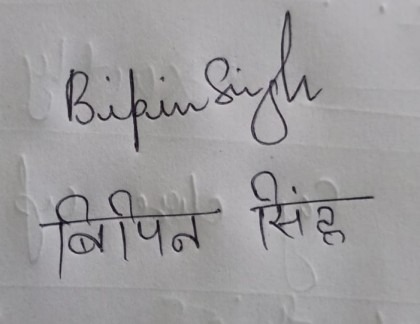 Bipin Singh
बिपिन सिंह